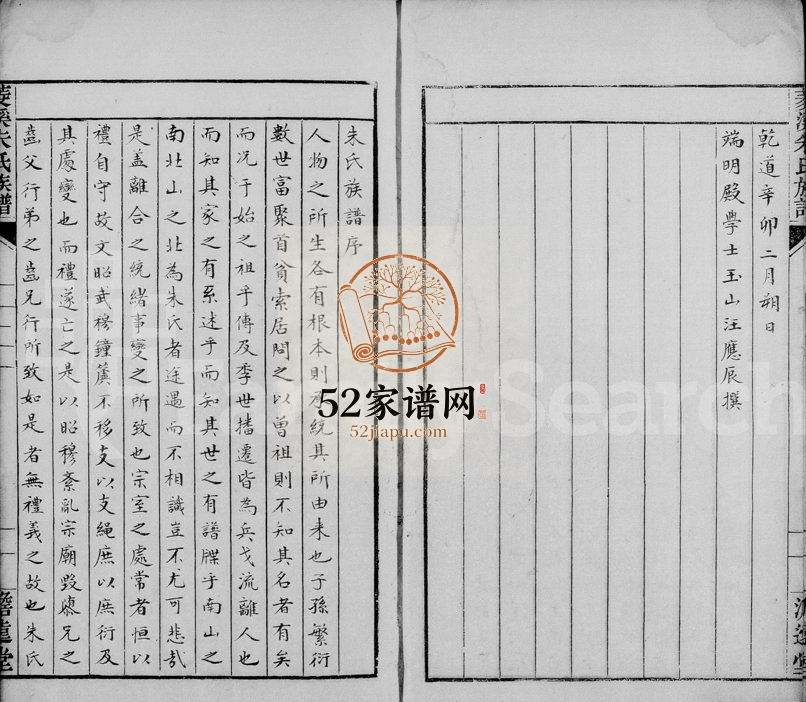 乾道辛卯二月朔日
端明殿學士玉山汪應辰撰
朱氏族譜序
人物之所生各有根本則承統其所由来也子孫繁衍
數世富聚首貧索居問之以曾祖則不知其名者有矣
而况于始之祖乎傳及季世播遷皆為兵戈流離人也
而知其家之有系述乎而知其世之有譜牒乎南山之
南北山之北為朱氏者途遇而不相識豈不尤可悲哉
是盖離合之統緒事變之所致也宗室之處常者恒以
禮自守故文昭武穆鐘簴不移支以支繩庶以庶衍及
其處變也而禮遂亡之是以昭穆紊亂宗廟毀隳兄之
齒父行弟之齒兄行所致如是者無禮義之故也朱氏
菱溪朱氏族譜
52家谱网
52jiapu.com
Search